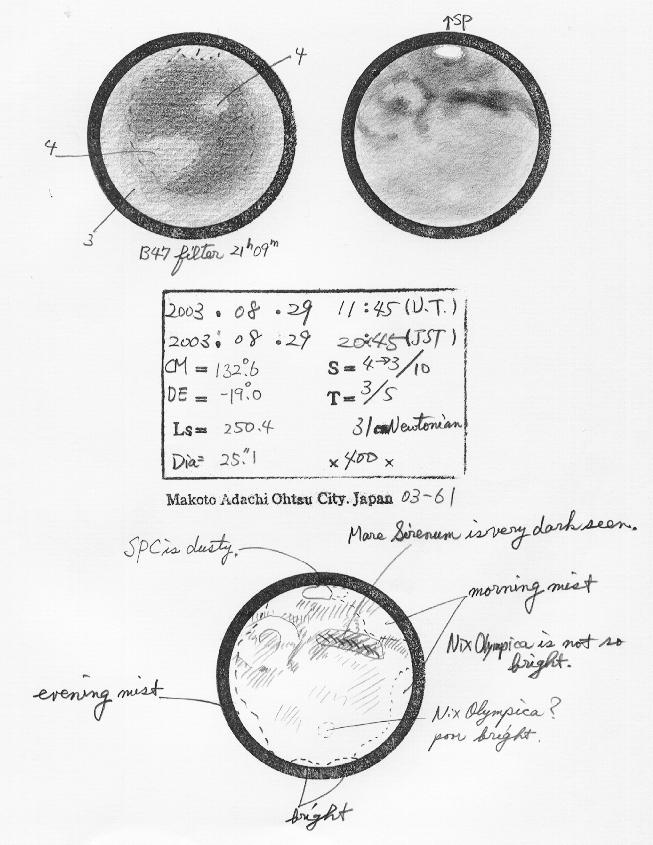 ↑SP
4
4
3
B47 filter 21h09m
2003 . 08 . 29 11:45 (U.T.)
2003 : 08 : 29 20:45 (JST)
CM = 132.°6 S = 4→3/10
DE = -19.°0 T = 3/5
Ls= 250.4 31cm Newtonian
Dia= 25."1 ×400×
Makoto Adachi Ohtsu City. Japan 03-61
Mare Sirenum is very dark seen.
SPC is dusty.
morning mist
Nix Olympica is not so
bright.
evening mist
Nix Olympica?
poor bright.
bright